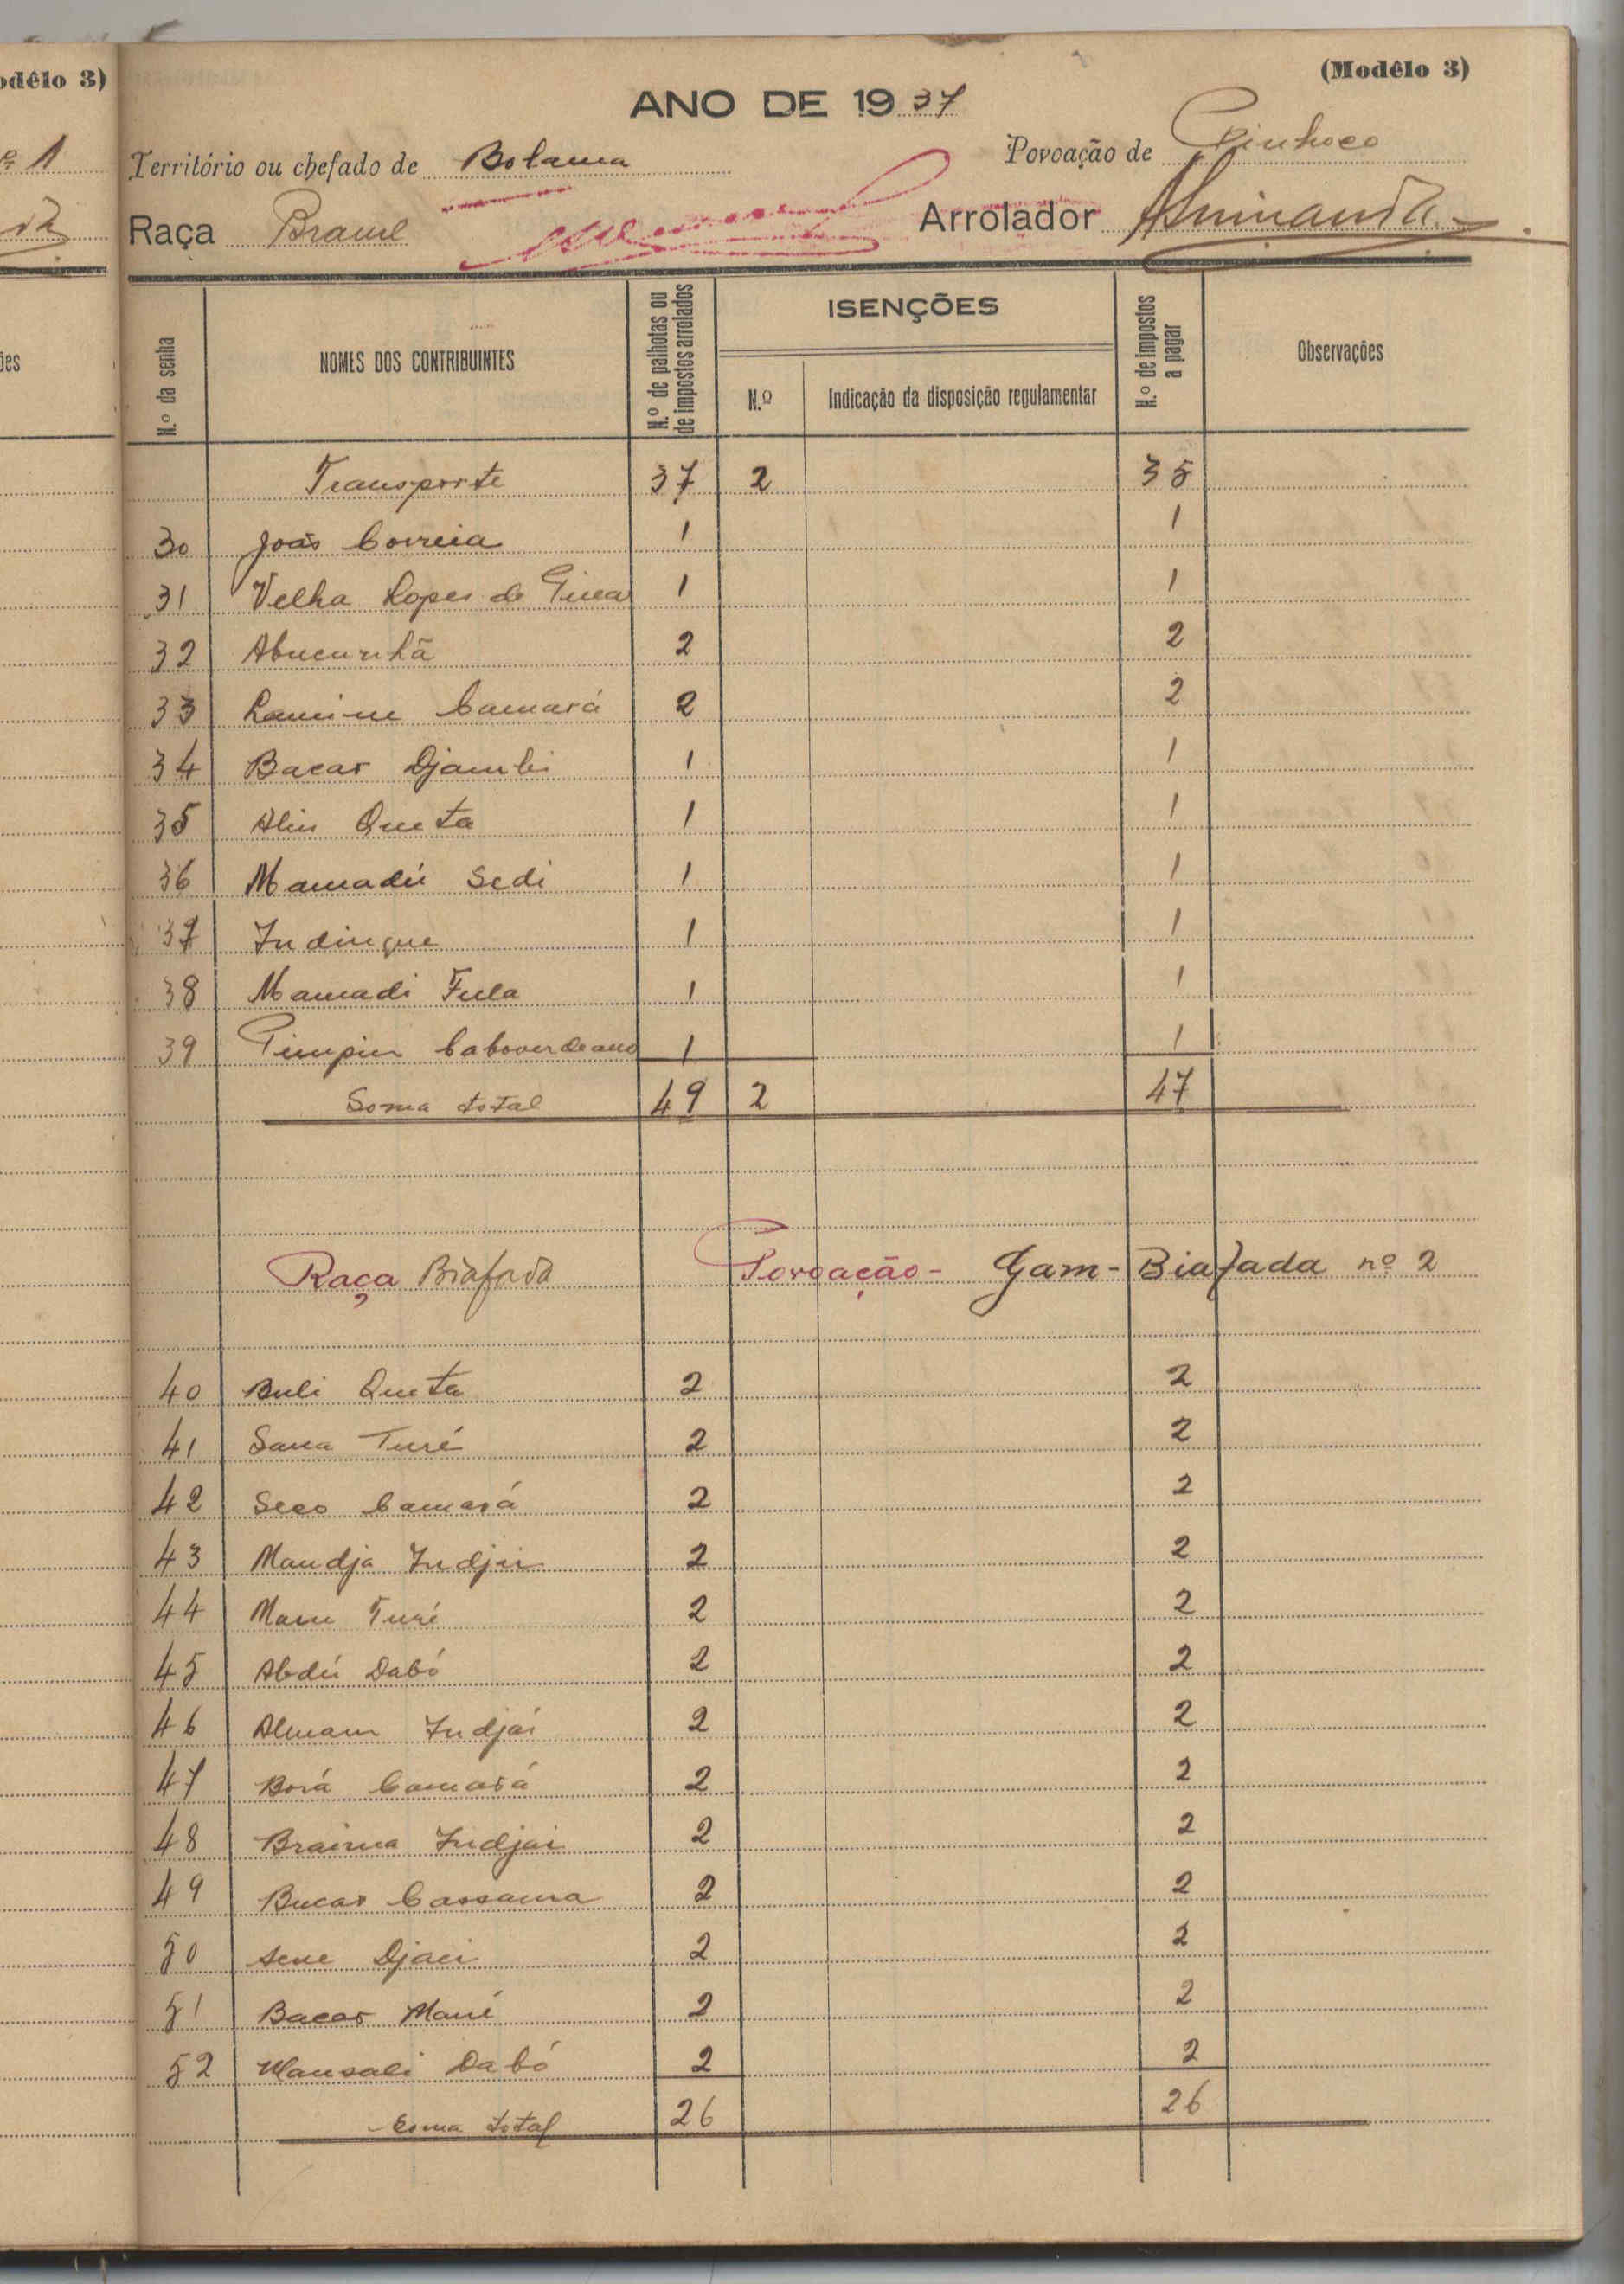 odêlo 3)
(Modêlo 3)
ANO DE 1937
º 1
Território ou chefado de Bolama
Povoação de
Raça Brame
Arrolador
ões
N.º da senha
NOMES DOS CONTRIBUINTES
N.º de palhotas ou de impostos arrolados
ISENÇÕES
N.º
Indicação da disposição regulamentar
N.º de impostos a pagar
Observações
Transporte 37 2 35
30 João Correia 1 1
31 Velha Lopes de 1 1
32 Abucunhã 2 2
33 Lamine Camará 2 2
34 Bacar Djambi 1 1
35 Aliu Queta 1 1
36 Mamadú Sedi 1 1
37 Indinque 1 1
38 Mamadi Fula 1 1
39 Caboverdeano 1 1
Soma total 49 2 47
Raça Biafada Povoação - Gam-Biafada nº 2
40 Buli Queta 2 2
41 Sana Turé 2 2
42 Seco Camará 2 2
43 Mandja Indjai 2 2
44 Turé 2 2
45 Abdú Dabó 2 2
46 Almam Indjái 2 2
47 Borá Camará 2 2
48 Braima Indjai 2 2
49 Bucar Cassama 2 2
50 Sene 2 2
51 Bacar Mané 2 2
52 Mansali Dabó 2 2
Soma total 26 26